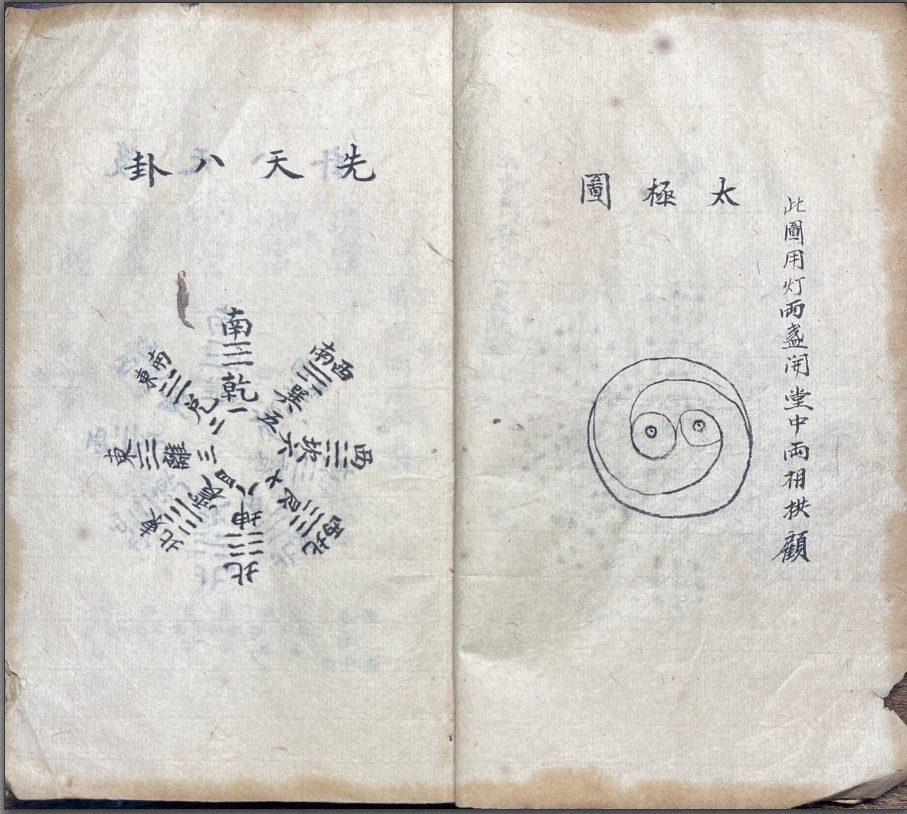 太極圖
此圖用灯兩盞開堂中兩相拱顧
先天八卦
南乾一
南東兌二
東離三
東北震四
南西巽五
西坎六
西北艮七
北坤八